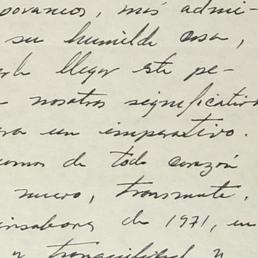 poraneos, más admi-
su humilde casa,
llegar este pe-
nosotros significativo
un imperativo.
de todo corazón
nuevo, transmute,
sinsabores de 1971, en
y tranquilidad y